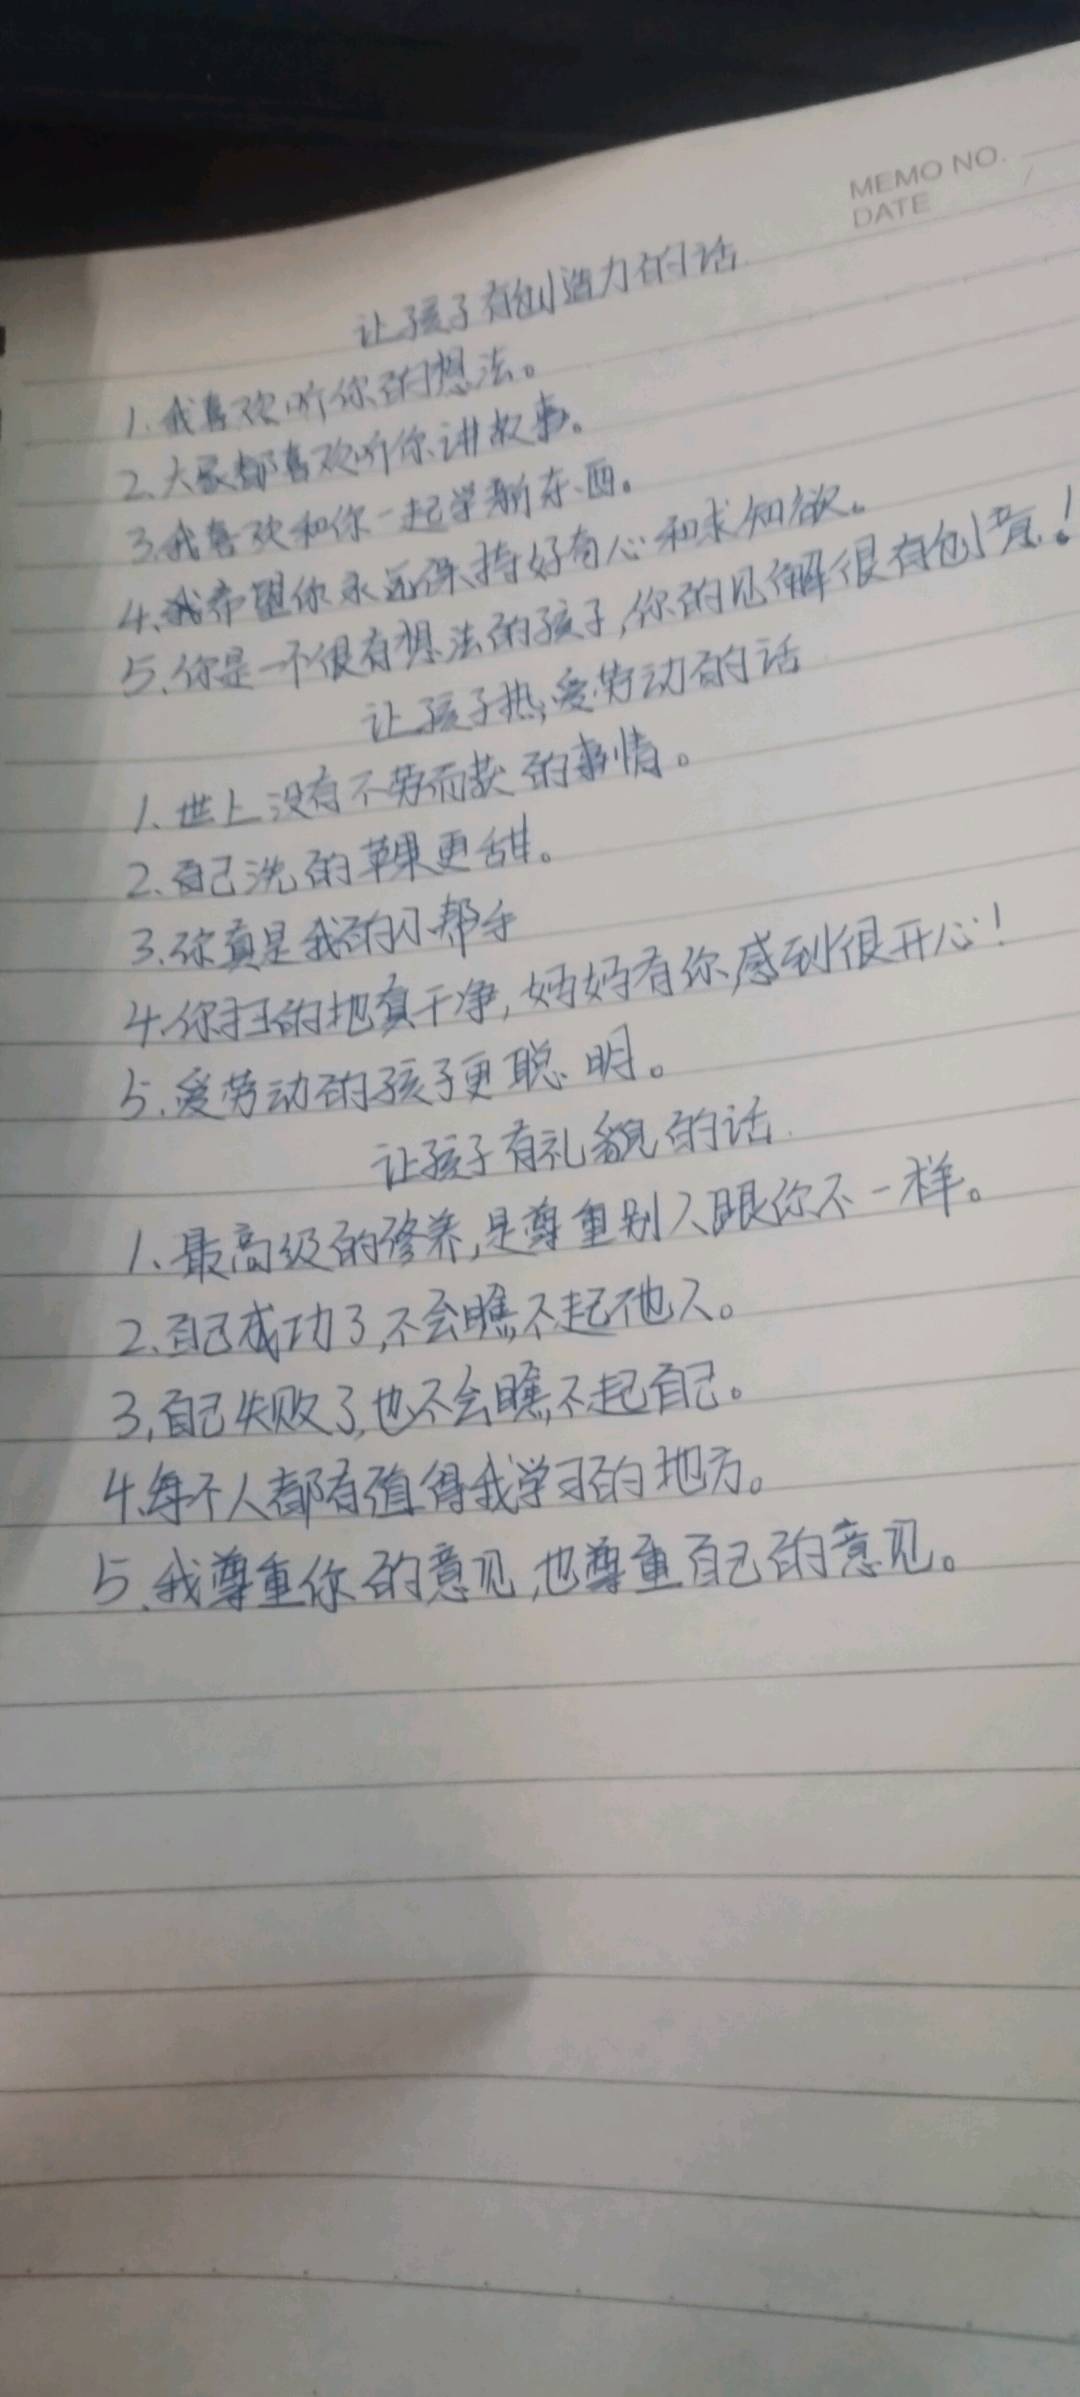 MEMO NO.
DATE
让孩子有创造力的话
1.我喜欢听你的想法。
2、大家都喜欢听你讲故事。
3.我喜欢和你一起学新东西。
4、我希望你永远保持好奇心和求知欲。
5、你是一个很有想法的孩子,你的见解很有创意!
让孩子热爱劳动的话
1、世上没有不劳而获的事情。
2、自己洗的苹果更甜。
3.你真是我的小帮手
4.你扫的地真干净,妈妈有你感到很开心!
5、爱劳动的孩子更聪明。
让孩子有礼貌的话
1、最高级的修养,是尊重别人跟你不一样。
2、自己成功了,不会瞧不起他人。
3,自己失败了,也不会瞧不起自己。
4、每个人都有值得我学习的地方。
5、我尊重你的意见,也尊重自己的意见。